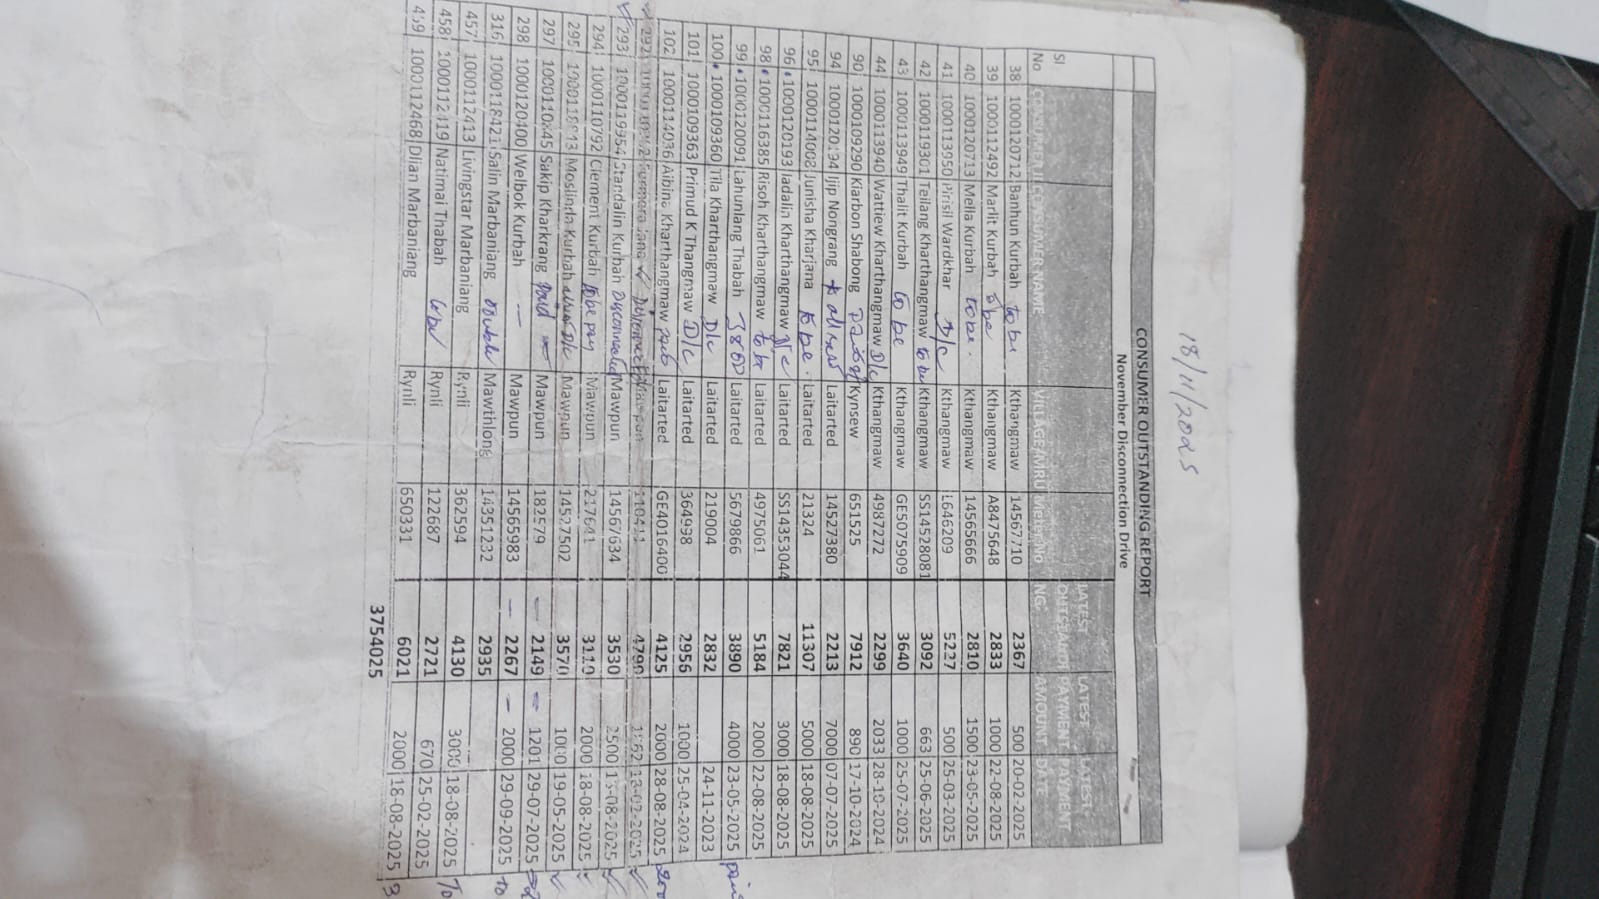 18/11/2025
CONSUMER OUTSTANDING REPORT
November Disconnection Drive
Sl No CONSUMER ID CONSUMER NAME VILLAGE/MRU Meter No LATEST OUTSTANDING LATEST PAYMENT AMOUNT LATEST PAYMENT DATE
38 1000120712 Banhun Kurbah to be Kthangmaw 14567710 2367 500 20-02-2025
39 1000112492 Marlit Kurbah to be Kthangmaw A8475648 2833 1000 22-08-2025
40 1000120713 Mella Kurbah to be. Kthangmaw 14565666 2810 1500 23-05-2025
41 1000113950 Pirisil Wardkhar D/c Kthangmaw L646209 5227 500 25-03-2025
42 1000119301 Teilang Kharthangmaw to be Kthangmaw SS14528081 3092 663 25-06-2025
43 1000113949 Thalit Kurbah to be Kthangmaw GE5075909 3640 1000 25-07-2025
44 1000113940 Wattiew Kharthangmaw D/c Kthangmaw 4987272 2299 2033 28-10-2024
90 1000109290 Kiarbon Shabong Kynsew 651525 7912 890 17-10-2024
94 1000120194 Ijip Nongrang Laitarted 14527380 2213 7000 07-07-2025
95 1000114002 Junisha Kharjana to be. Laitarted 21324 11307 5000 18-08-2025
96 1000120193 Iadalin Kharthangmaw D/c Laitarted SS14353044 7821 3000 18-08-2025
98 1000116385 Risoh Kharthangmaw to be Laitarted 4975061 5184 2000 22-08-2025
99 1000120091 Lahunlang Thabah Laitarted 5679866 3890 4000 23-05-2025
100 1000109360 Tila Kharthangmaw D/c Laitarted 219004 2832 24-11-2023
101 1000109363 Primud K Thangmaw D/c Laitarted 364998 2956 1000 25-04-2024
102 1000114036 Aibina Kharthangmaw Laitarted GE4016400 4125 2000 28-08-2025
292 4790 13-02-2025
293 1000119954 Standalin Kurbah Disconnected Mawpun 14567634 3530 2500
294 1000110792 Clement Kurbah to be pay Mawpun 217641 3119 2000 18-08-2025
295 Moslinda Kurbah D/c Mawpun 14527502 3570 1000 19-05-2025
297 Sakip Kharkrang paid Mawpun 182579 2149 1201 29-07-2025
298 1000120400 Welbok Kurbah Mawpun 14565983 2267 2000 29-09-2025
316 1000118421 Salin Marbaniang Mawthlong 14351232 2935
457 1000112413 Livingstar Marbaniang Rynli 362594 4130 3000 18-08-2025
458 1000112419 Natimai Thabah to be Rynli 122687 2721 670 25-02-2025
459 1000112468 Dlian Marbaniang Rynli 650331 6021 2000 18-08-2025
3754025